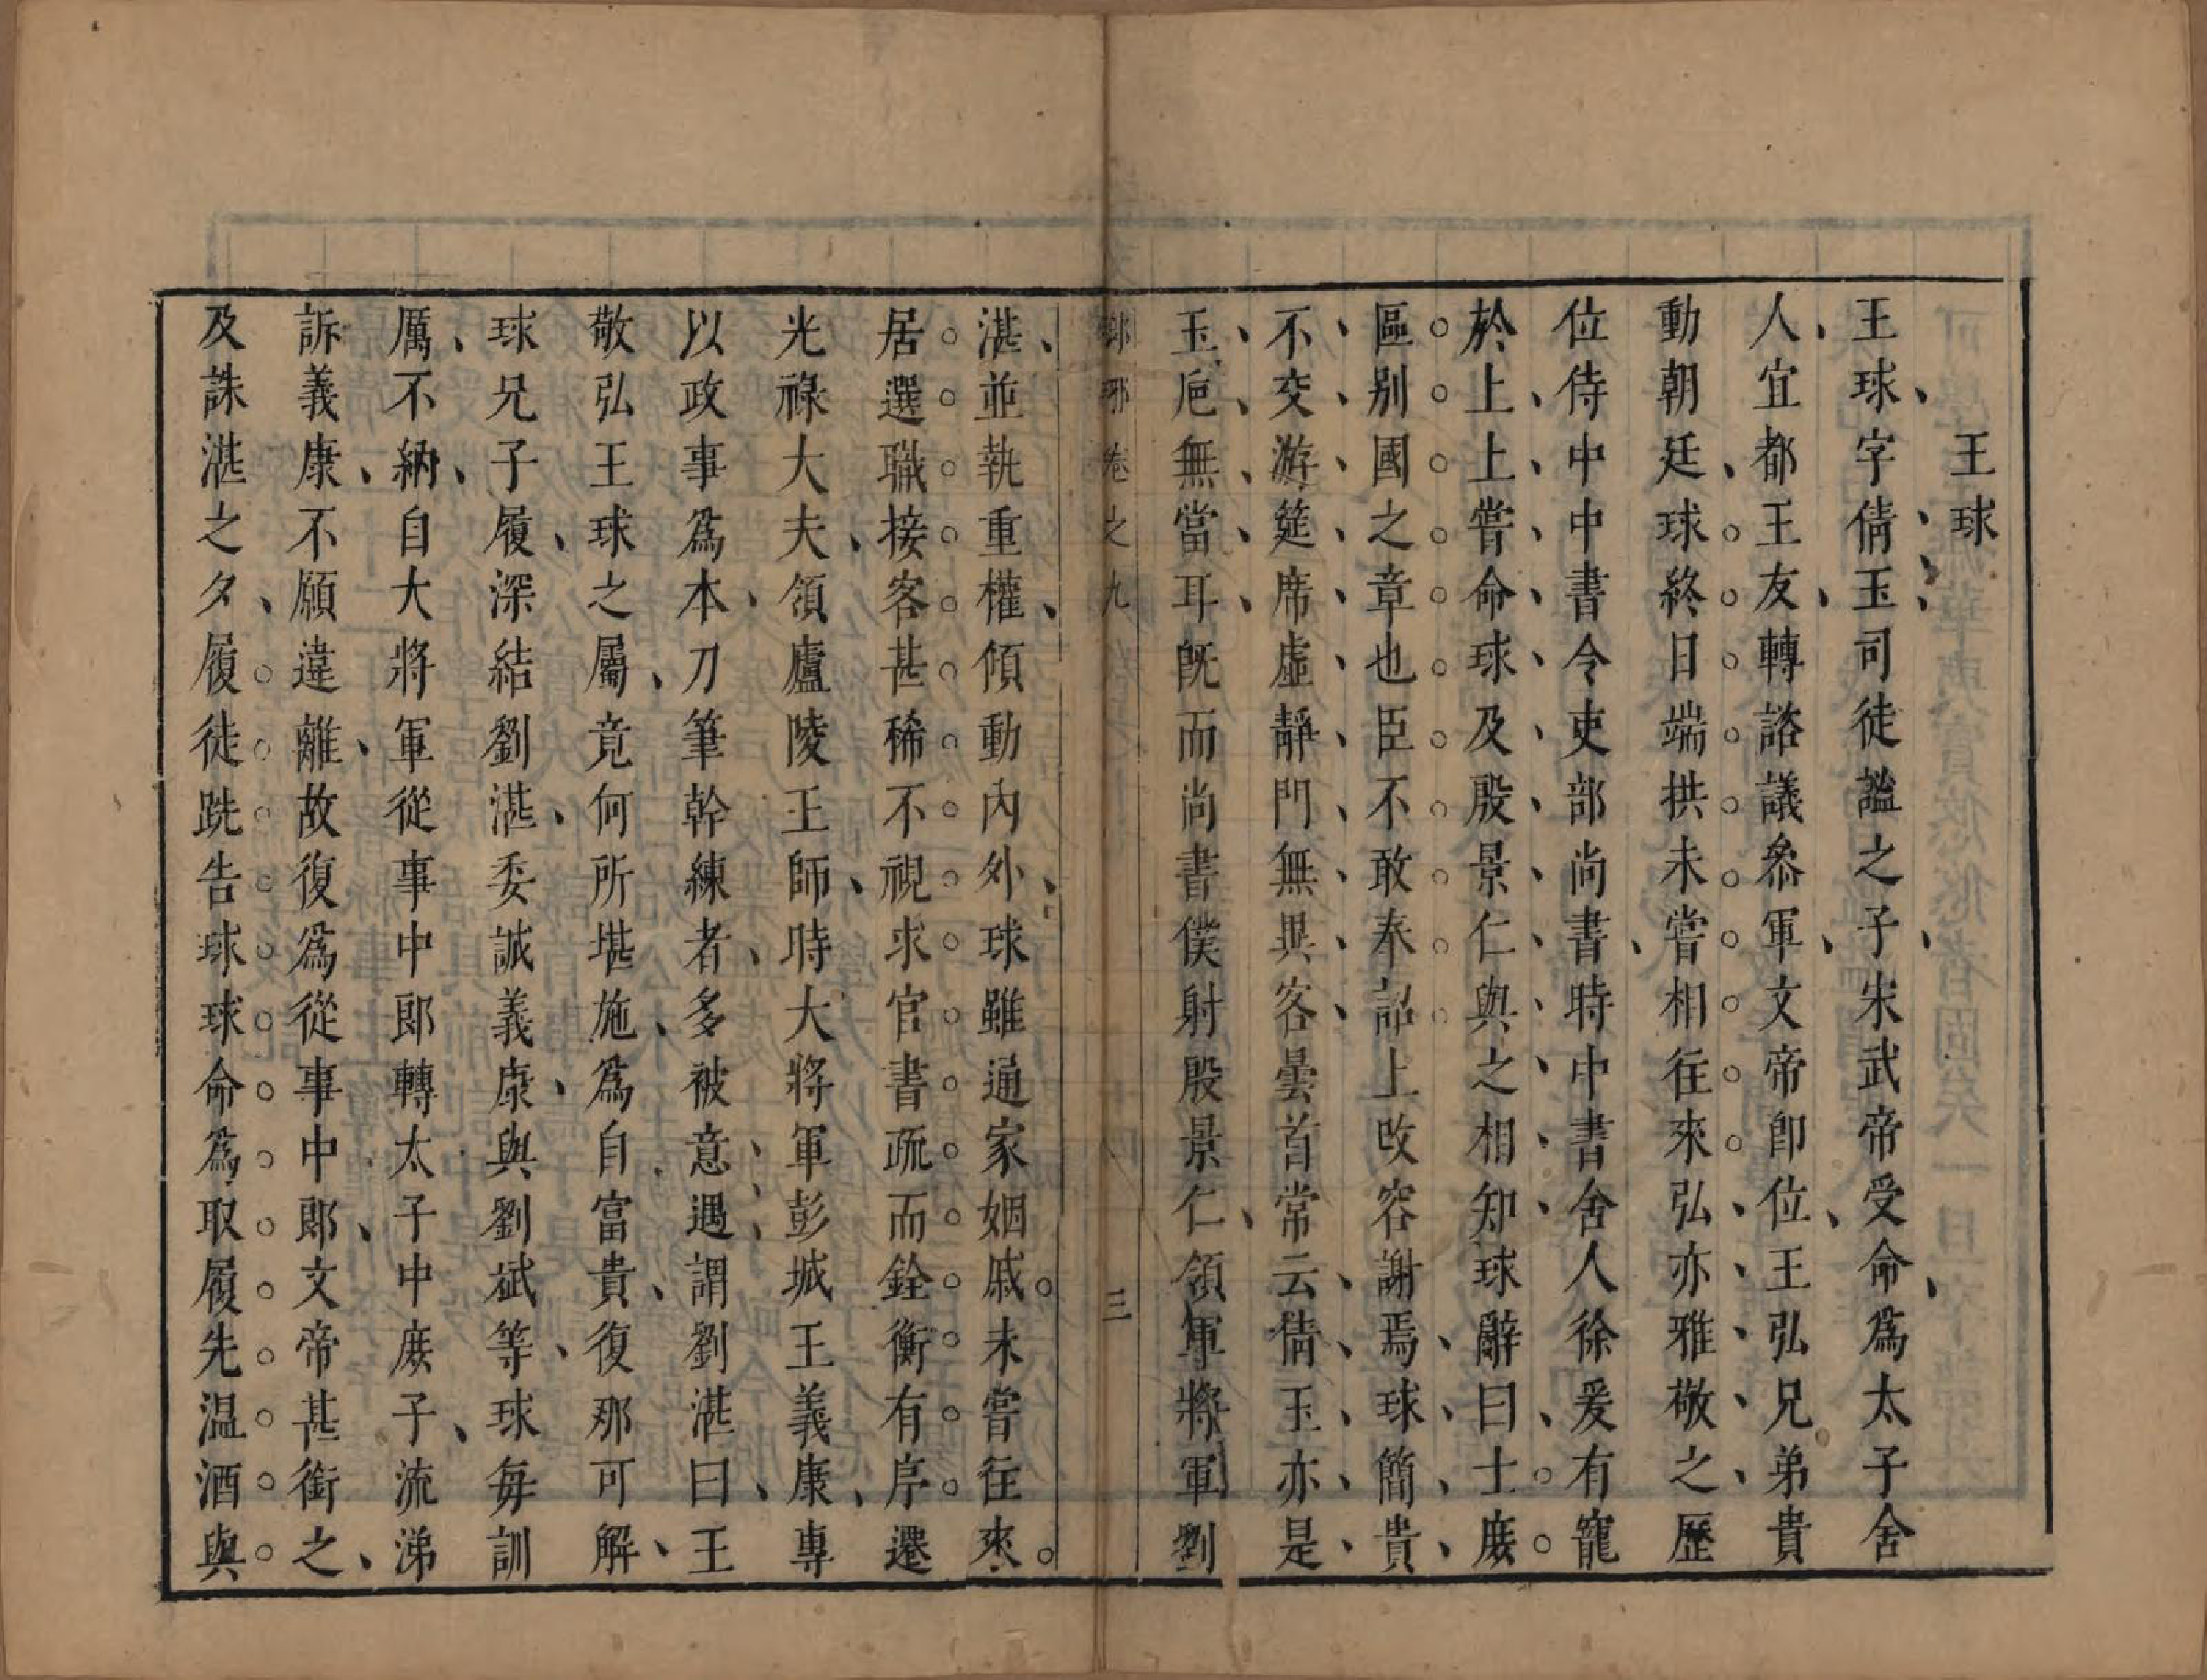 王球
王球字倩玉司徒謐之子宋武帝受命爲太子舍
人宜都王友轉諮議叅軍文帝卽位王弘兄弟貴
動朝廷球終日端拱未嘗相徃來弘亦雅敬之歷
位侍中中書令吏部尚書時中書舍人徐爰有寵
於上上嘗命球及殷景仁與之相知球辭曰士庶
區别國之章也臣不敢奉詔上改容謝焉球簡貴
不交游筵席虛靜門無異客曇首常云倩玉亦是
玉巵無當耳旣而尚書僕射殷景仁領軍將軍劉
鄉琊卷之九 三
湛並執重權傾動內外球雖通家姻戚未嘗徃來
居選職接客甚稀不視求官書疏而銓衡有序遷
光祿大夫領廬陵王師時大將軍彭城王義康專
以政事爲本刀筆幹練者多被意遇謂劉湛曰王
敬弘王球之屬竟何所堪施爲自富貴復那可解
球兄子履深結劉湛委誠義康與劉斌等球每訓
厲不納自大將軍從事中郎轉太子中庶子流涕
訴義康不願違離故復爲從事中郎文帝甚銜之
及誅湛之夕履徒跣告球球命爲取履先温酒與